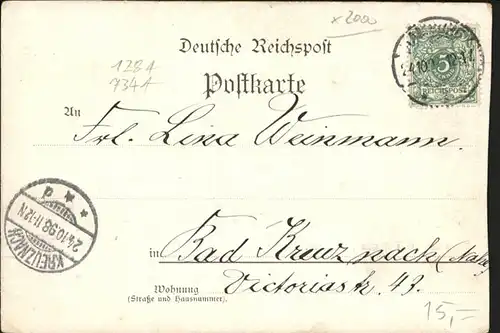 x 2000
Deutsche Reichspost
Postkarte
128A
734A
5
REICHSPOST
An
Frl. Lina Weinmann.
KREUZNACH
24.10.98.11-12N
d
in Bad Kreuznach (Nahe)
Wohnung
(Straße und Hausnummer).
Victoriastr. 43.
15,—